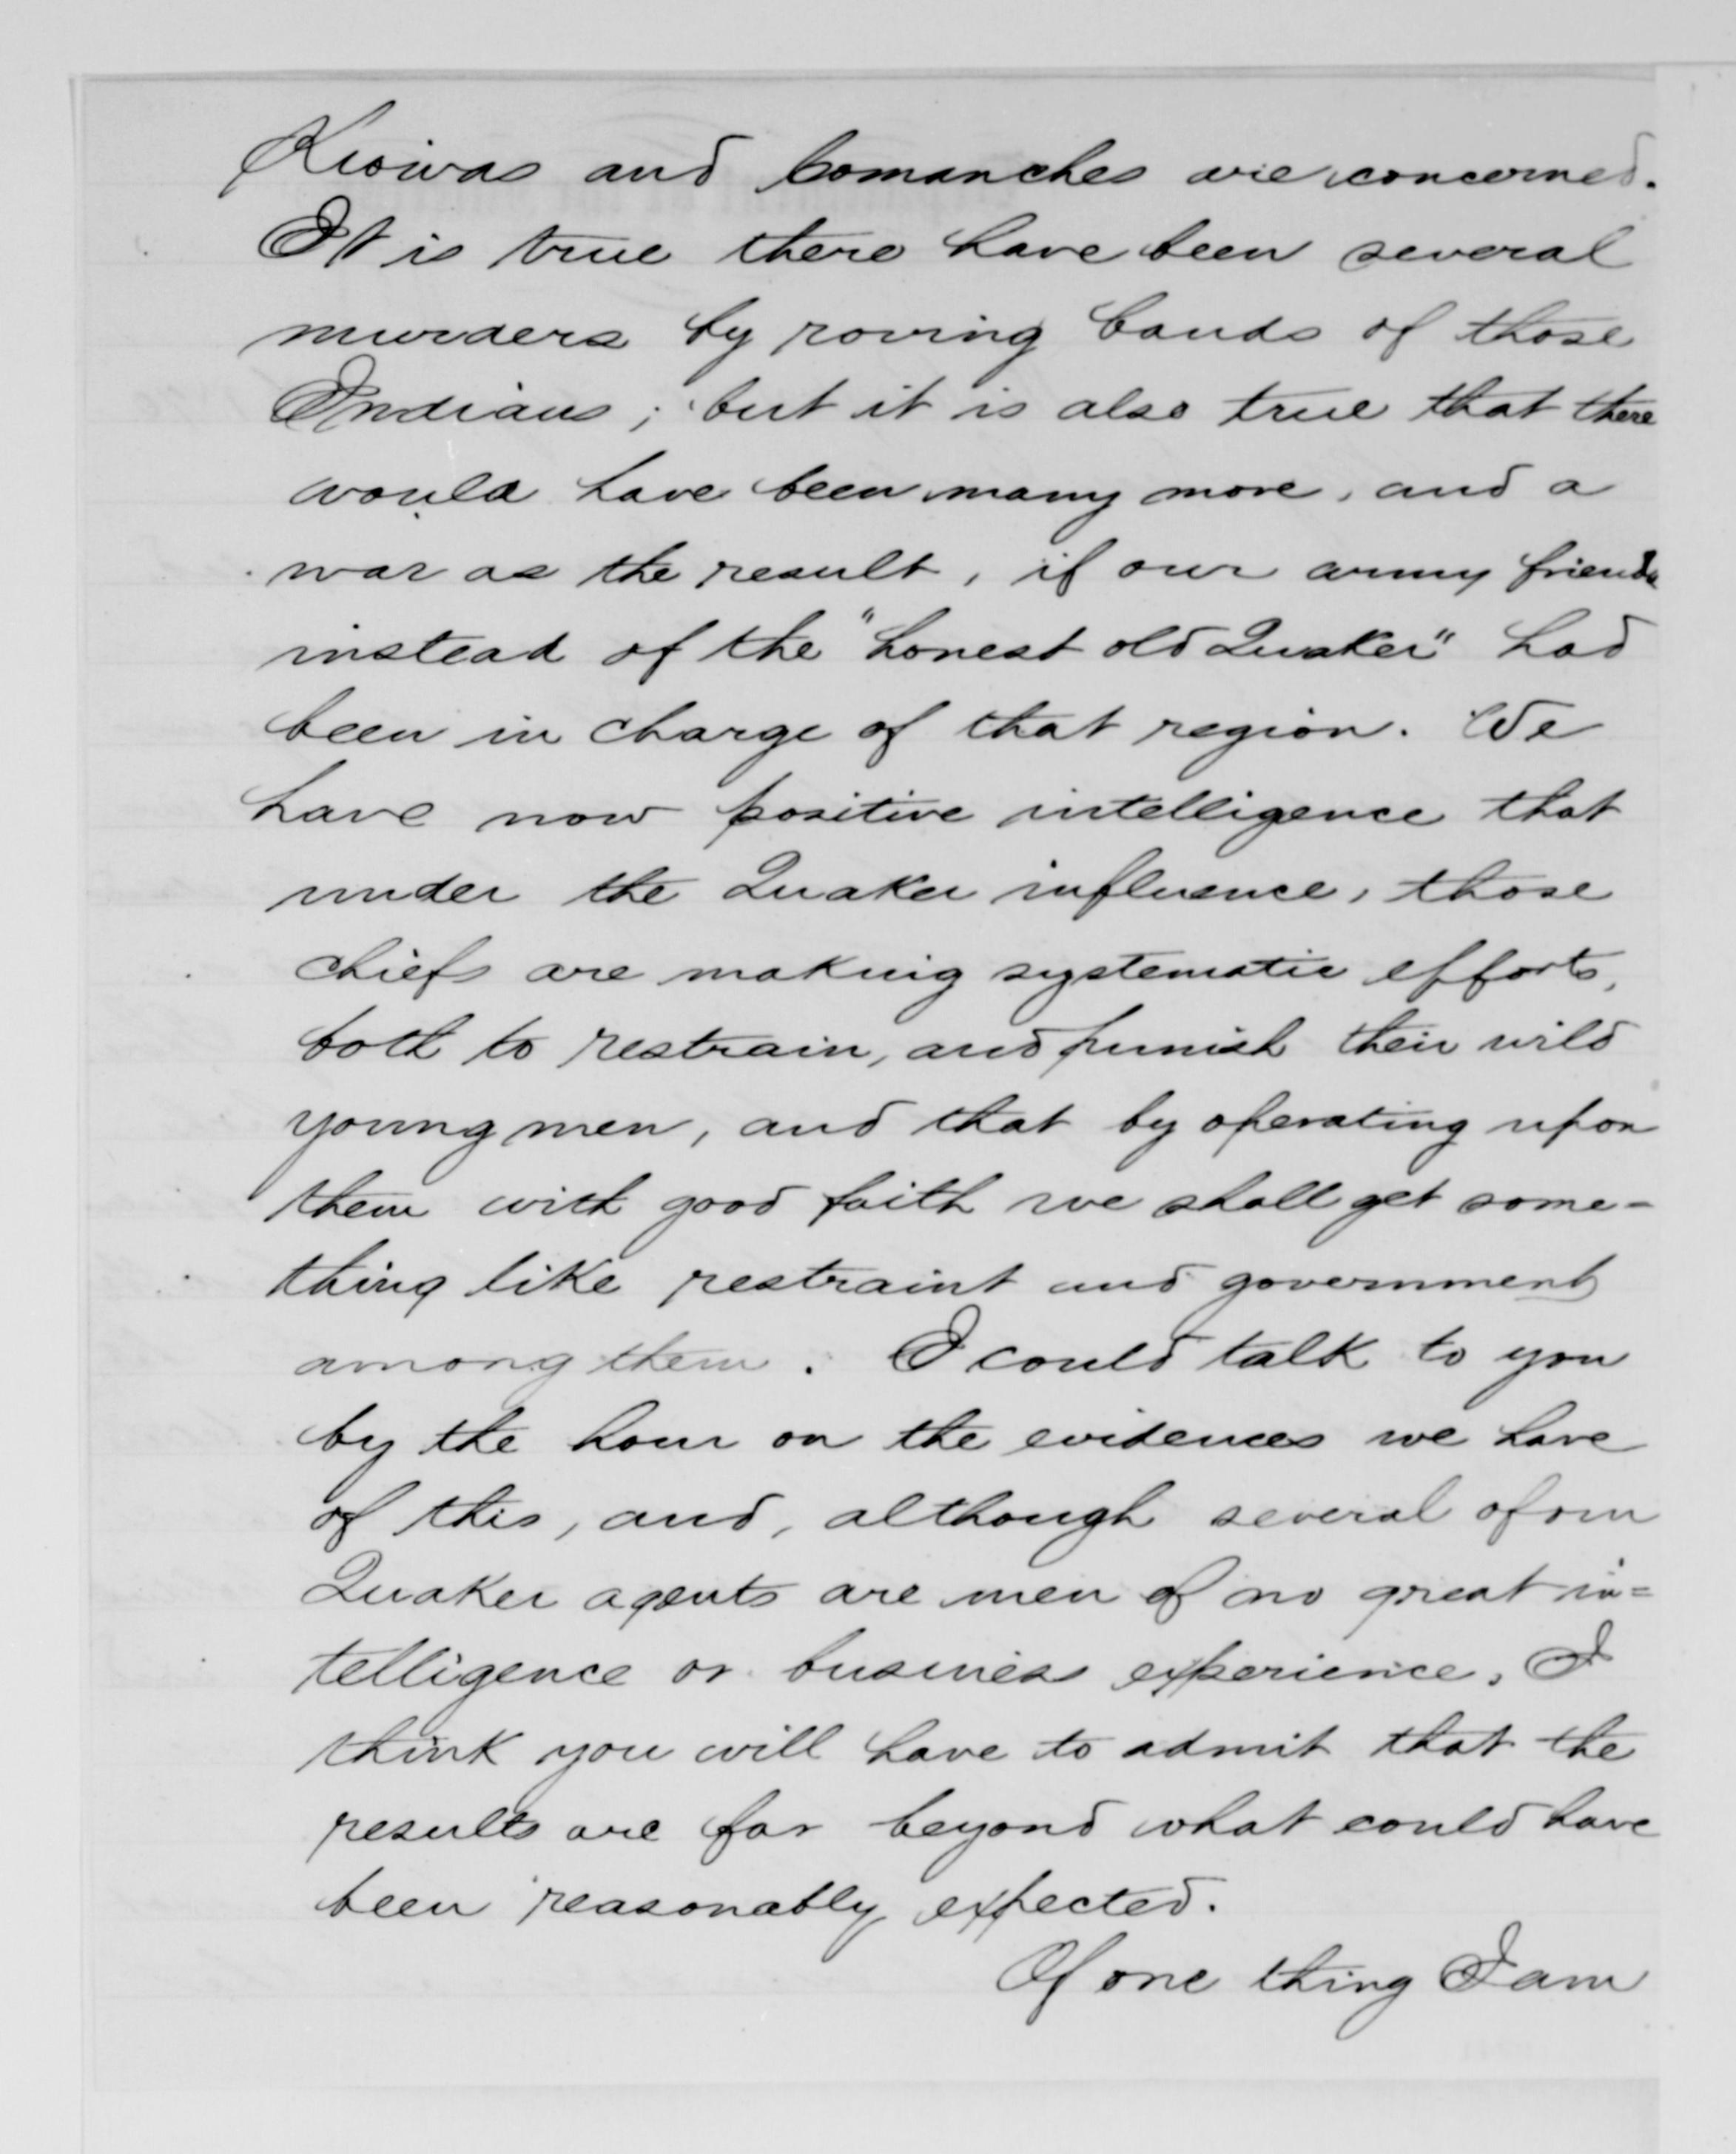 Kiowas and Comanches are concerned.
It is true there have been several
murders by roving bands of those
Indians; but it is also true that there
would have been many more, and a
war as the result, if our army friends
instead of the "honest old Quaker" had
been in charge of that region. We
have now positive intelligence that
under the Quaker influence, those
chiefs are making systematic efforts,
both to restrain, and punish their wild
young men, and that by operating upon
them with good faith we shall get some-
thing like restraint and government
among them. I could talk to you
by the hour on the evidences we have
of this, and, although several of our
Quaker agents are men of no great in=
telligence or business experience, I
think you will have to admit that the
results are far beyond what could have
been reasonably expected.
Of one thing I am